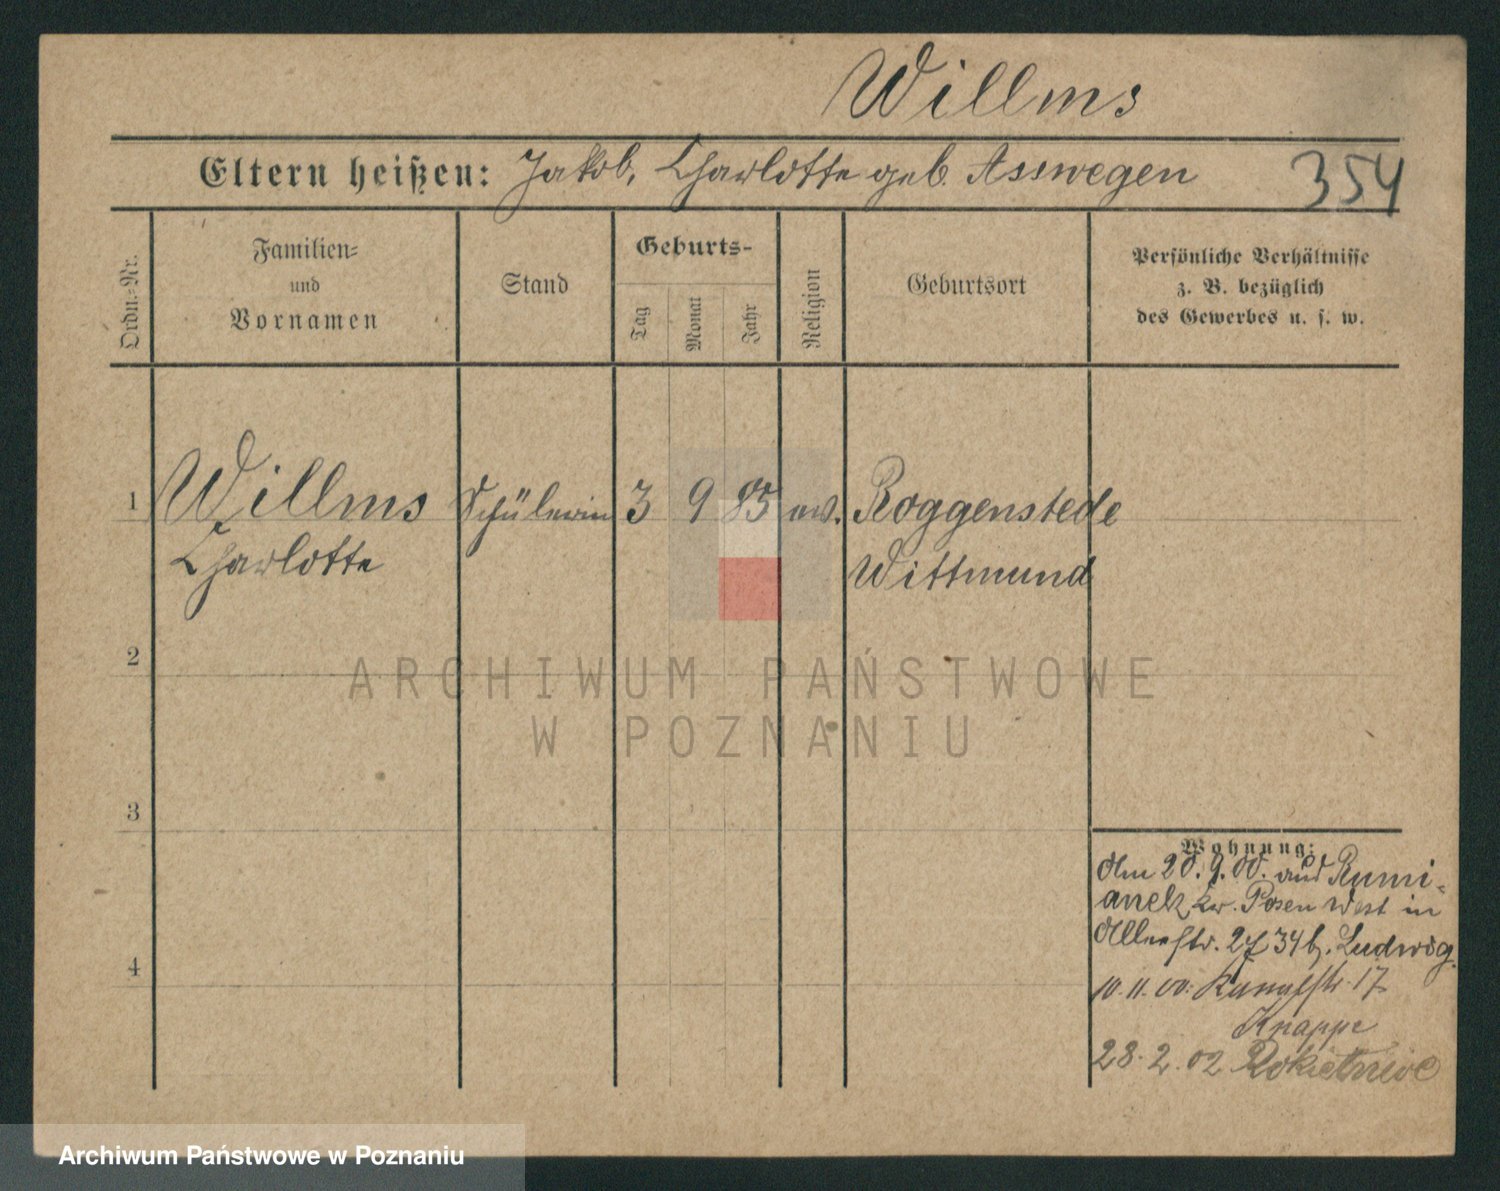 Willms
Eltern heißen: Jakob, Charlotte geb. Asswegen 354
Ordn.-Nr.
Familien-
und
Vornamen
Stand
Geburts-
Tag
Monat
Jahr
Religion
Geburtsort
Persönliche Verhältnisse
z. B. bezüglich
des Gewerbes u. s. w.
1 Willms Schülerin 3 9 85 ev. Roggenstede
Charlotte Wittmund
2
ARCHIWUM PAŃSTWOWE
W POZNANIU
3
Wohnung:
Am 20.9.00. aus Rumi-
anek Kr. Posen West in
Alleestr. 34 b. Ludwig.
10.11.00: Kanalstr. 17
Knappe
4
28.2.02 Rokietnice
Archiwum Państwowe w Poznaniu